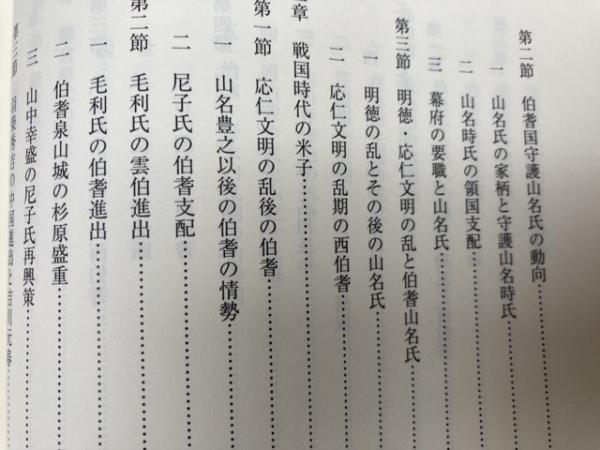 第二節 伯耆国守護山名氏の動向
一 山名氏の家柄と守護山名時氏
二 山名時氏の領国支配
三 幕府の要職と山名氏
第三節 明徳・応仁文明の乱と伯耆山名氏
一 明徳の乱とその後の山名氏
二 応仁文明の乱期の西伯耆
章 戦国時代の米子
第一節 応仁文明の乱後の伯耆
一 山名豊之以後の伯耆の情勢
二 尼子氏の伯耆支配
第二節 毛利氏の雲伯進出
一 毛利氏の伯耆進出
二 伯耆泉山城の杉原盛重
三 山中幸盛の尼子氏再興策
第三節 羽柴秀吉の中国進出と吉川元春